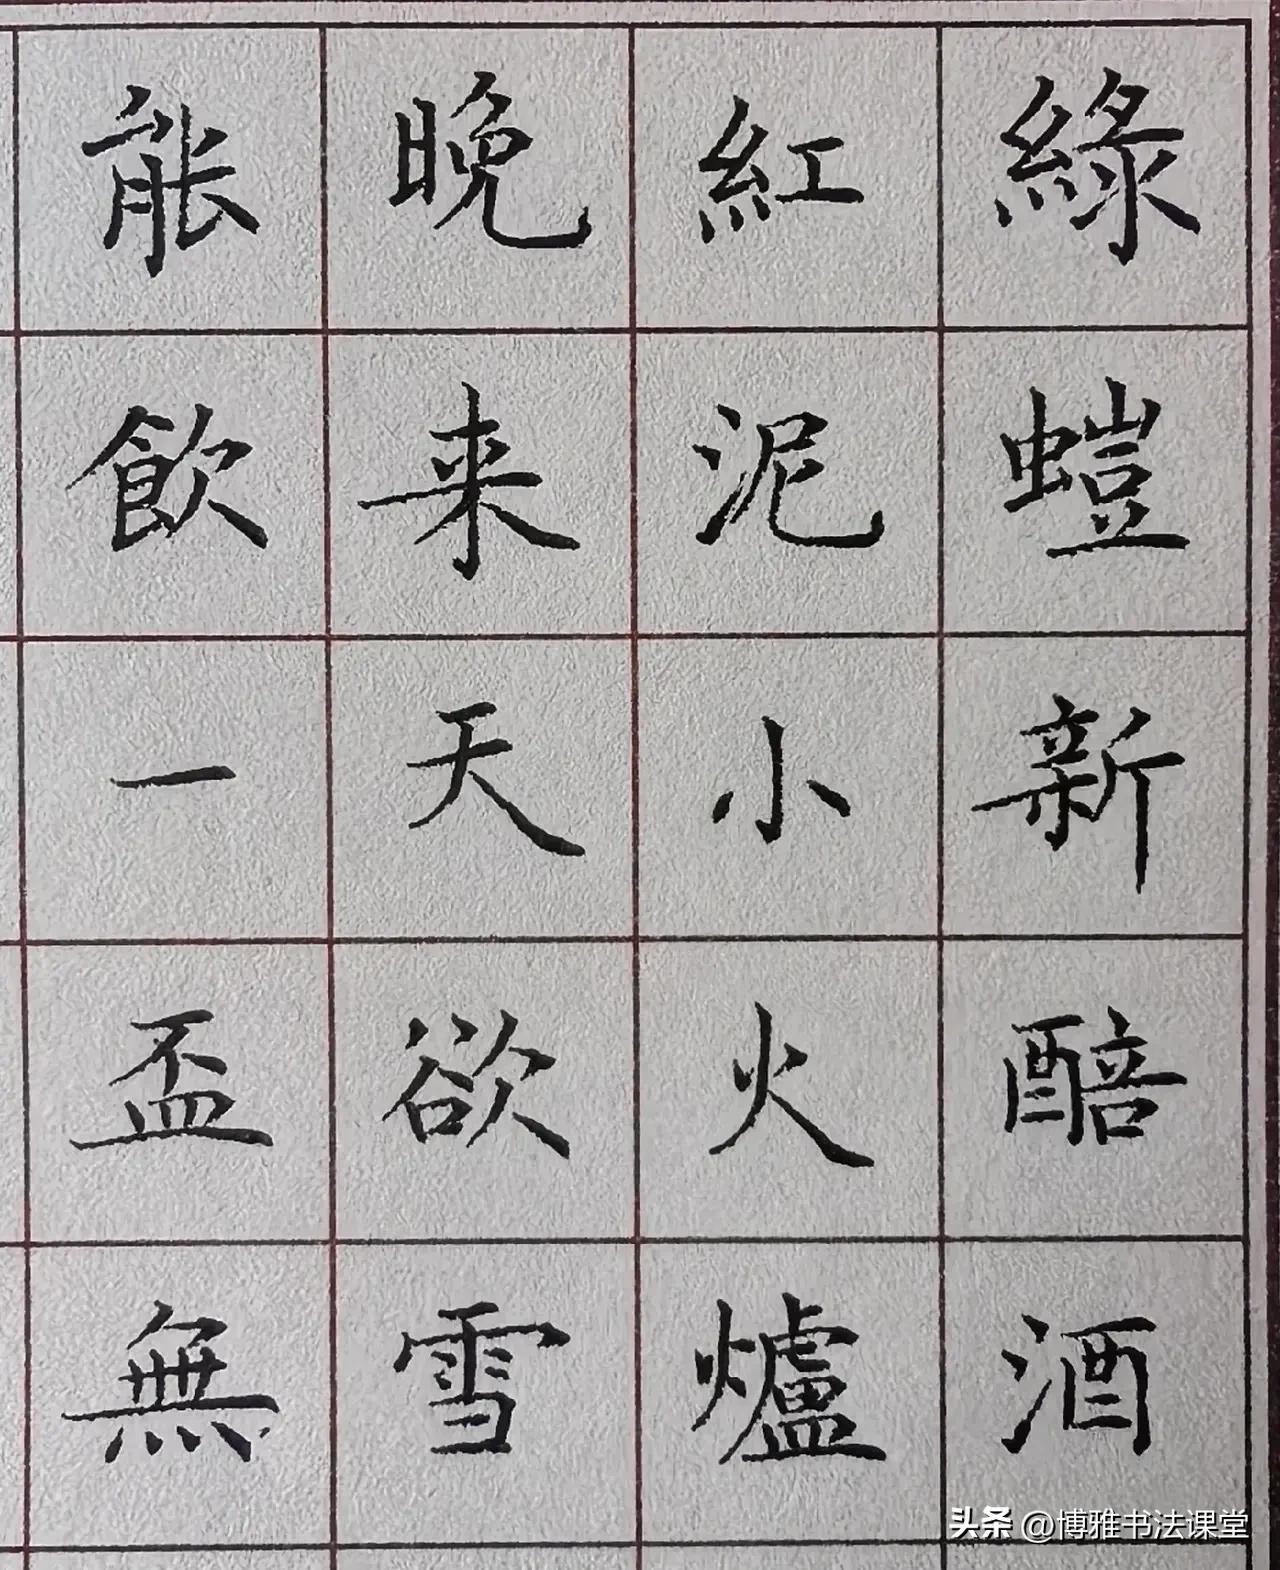 綠螘新醅酒
紅泥小火爐
晚来天欲雪
能飲一盃無
头条 @博雅书法课堂